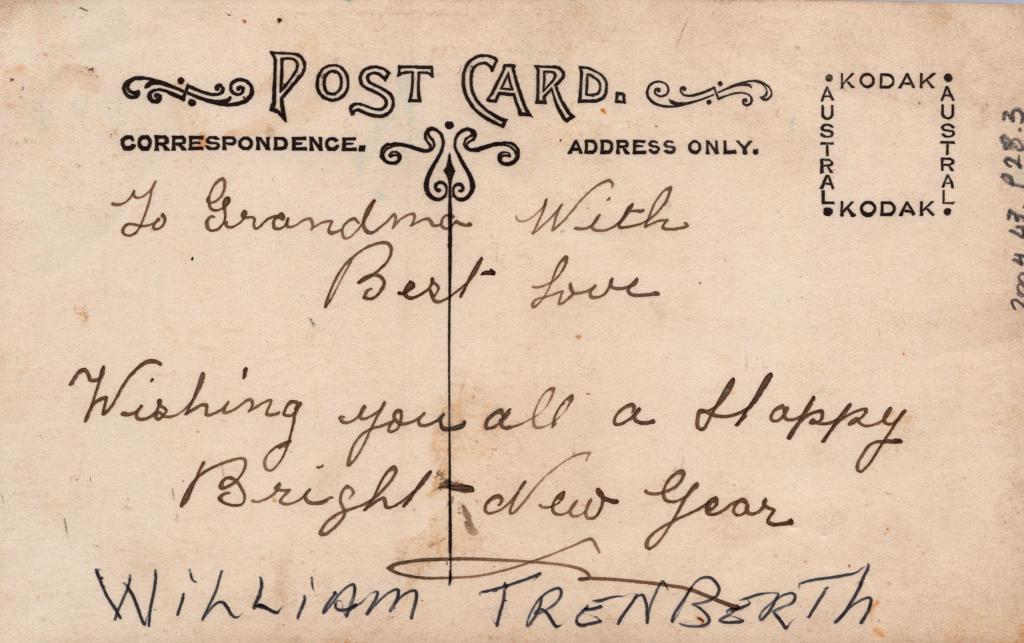 POST CARD.
CORRESPONDENCE.
ADDRESS ONLY.
KODAK
AUSTRAL
AUSTRAL
KODAK
To Grandma With
Best Love
Wishing you all a Happy
Bright New Year
WILLIAM TRENBERTH
2004.43.P28.3